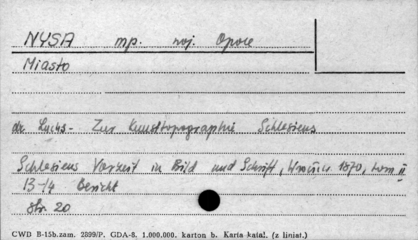 NYSA mp. woj. Opole
Miasto
dr Luchs - Zur Kunsttopographie Schlesiens
Schlesiens Vorzeit in Bild und Schrift, 1870, tom II
13-14 Bericht
Str. 20
CWD B-15b.zam. 2899/P. GDA-8. 1.000.000. karton b. Karta katal. (z liniat.)